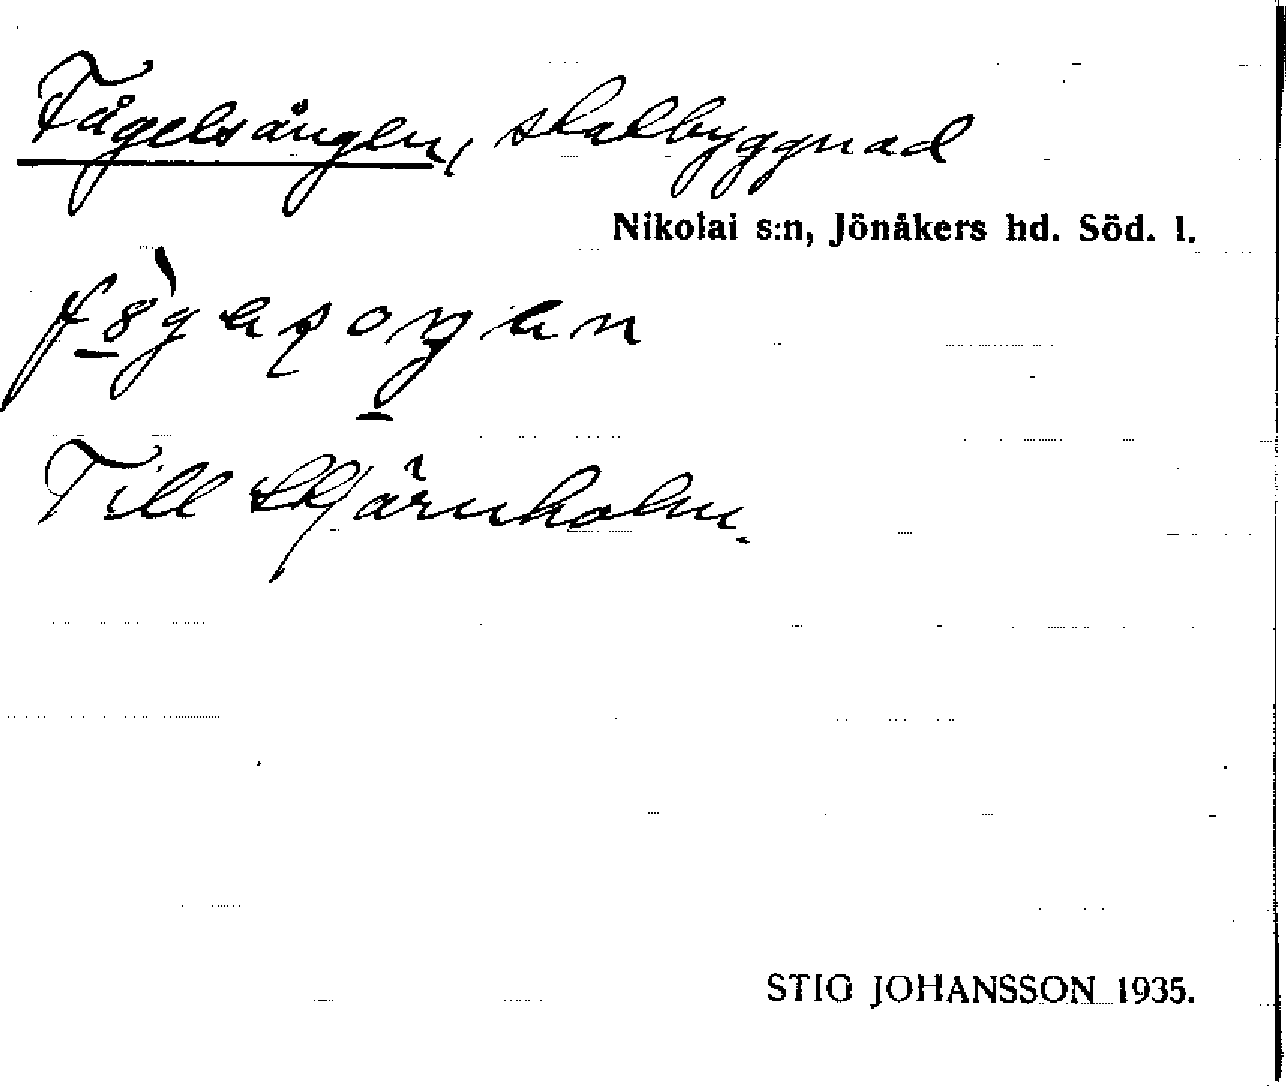 Fågelsången, skalbyggnad
Nikolai s:n, Jönåkers hd. Söd. l.
Till Stjärnholm.
STIG JOHANSSON 1935.